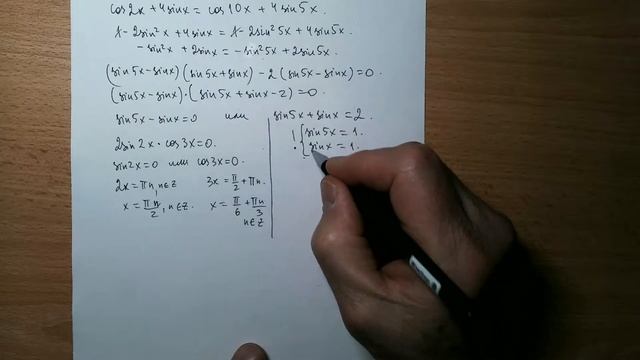 cos2x + 4sinx = cos10x + 4sin5x.
1 - 2sin²x + 4sinx = 1 - 2sin²5x + 4sin5x.
-sin²x + 2sinx = -sin²5x + 2sin5x.
(sin5x - sinx)(sin5x + sinx) - 2(sin5x - sinx) = 0.
(sin5x - sinx)·(sin5x + sinx - 2) = 0.
sin5x - sinx = 0 или sin5x + sinx = 2.
2sin2x · cos3x = 0.
sin2x = 0 или cos3x = 0.
2x = πn, n∈Z 3x = π/2 + πn.
x = πn/2, n∈Z. x = π/6 + πn/3
n∈Z
{ sin5x = 1.
sinx = 1.